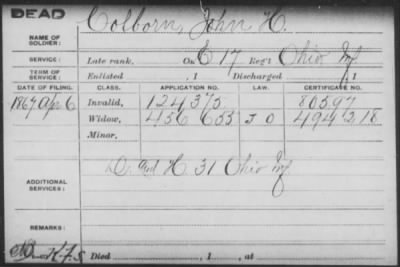 DEAD
NAME OF SOLDIER: Colborn, John H.
SERVICE: Late rank, Co. C 17 Reg't Ohio Inf
TERM OF SERVICE: Enlisted , 1 Discharged , 1
DATE OF FILING. CLASS. APPLICATION NO. LAW. CERTIFICATE NO.
1867 Apr 6 Invalid, 124375 80597
Widow, 456 655 J O 494 218
Minor,
ADDITIONAL SERVICES: D. and H 31 Ohio Inf
REMARKS:
K.F.S Died , 1 , at